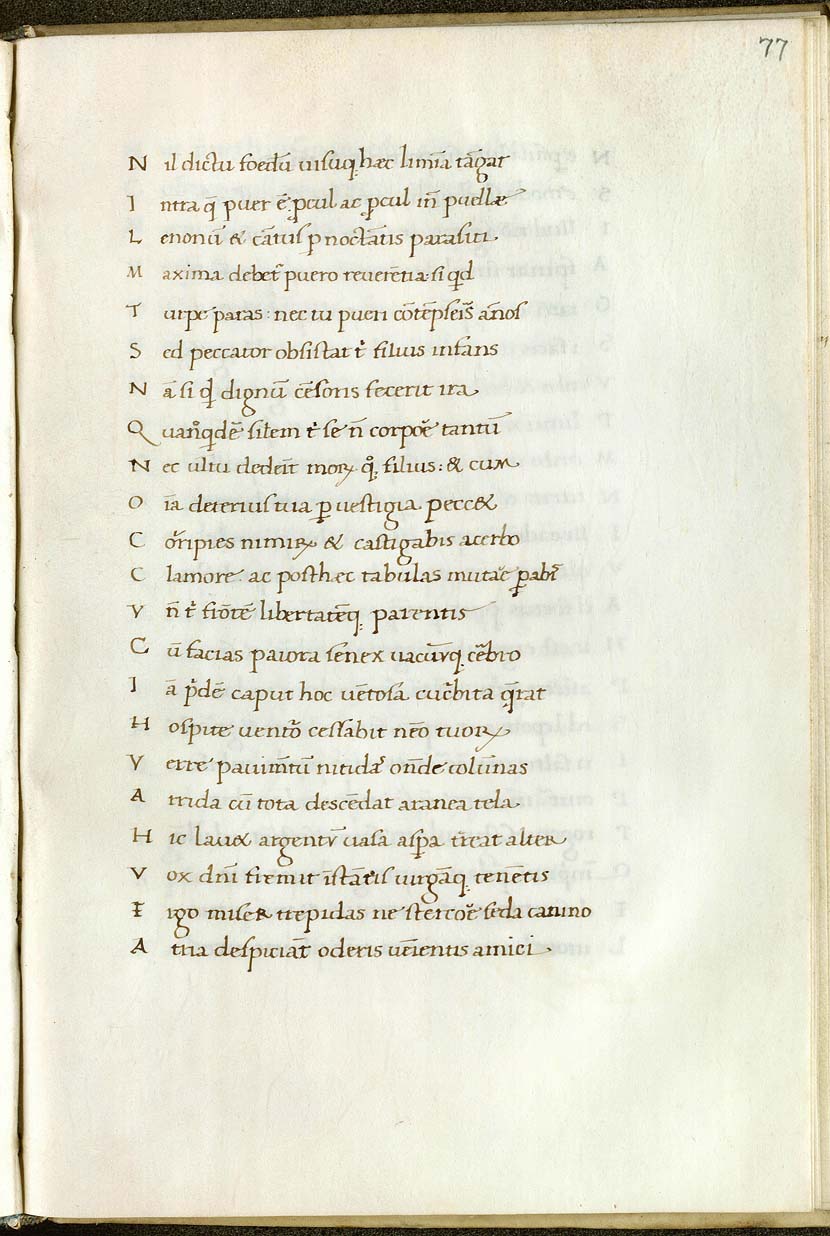 77
N il dictu foedū uisuq; hæc limīa tāgat
I ntra q̄ puer ē: ꝓcul ac ꝓcul īn puellæ
L enonū & cātus ꝑnoctātis parasiti.
M axima debet᷑ puero reuerētia: si qͥd
T urpe paras: nec tu pueri cōtēpseis᷑ ānos
S ed peccator obsistat tͥ filius infans
N ā si qͥd dignū cēsoris fecerit ira
Q uan̄qͥdē silem tͥ se n̄ corpoē tantū
N ec ultu dedeīt moꝝ qͦq; filius: & cum
O īa deterius tua ꝑ uestigia peccæ
C or̄ripies nimiꝝ & castigabis acerbo
C lamore: ac posthæc tabulas mutāe ꝑabis᷑
V n̄ tͥ frōtē libertatēq; parentis
C ū facias paiora senex uacuūq; cēbro
I ā pͥdē caput hoc uētosa cucᷣbita qᷣrat
H ospite uentᷣo cessabit nēo tuoꝝ
V erre pauimt̄ū nitidas᷑ ondē colūnas
A rida cū tota descēdat aranea tela
H ic lauæ argentū uasa asꝑa t᷑reat alter
V ox dnī fremit īstātͥs uirgāq; tenētis
E rgo miser trepidas ne st᷑ercoē feda canino
A tria despiciāt᷑ oderis uēientis amici